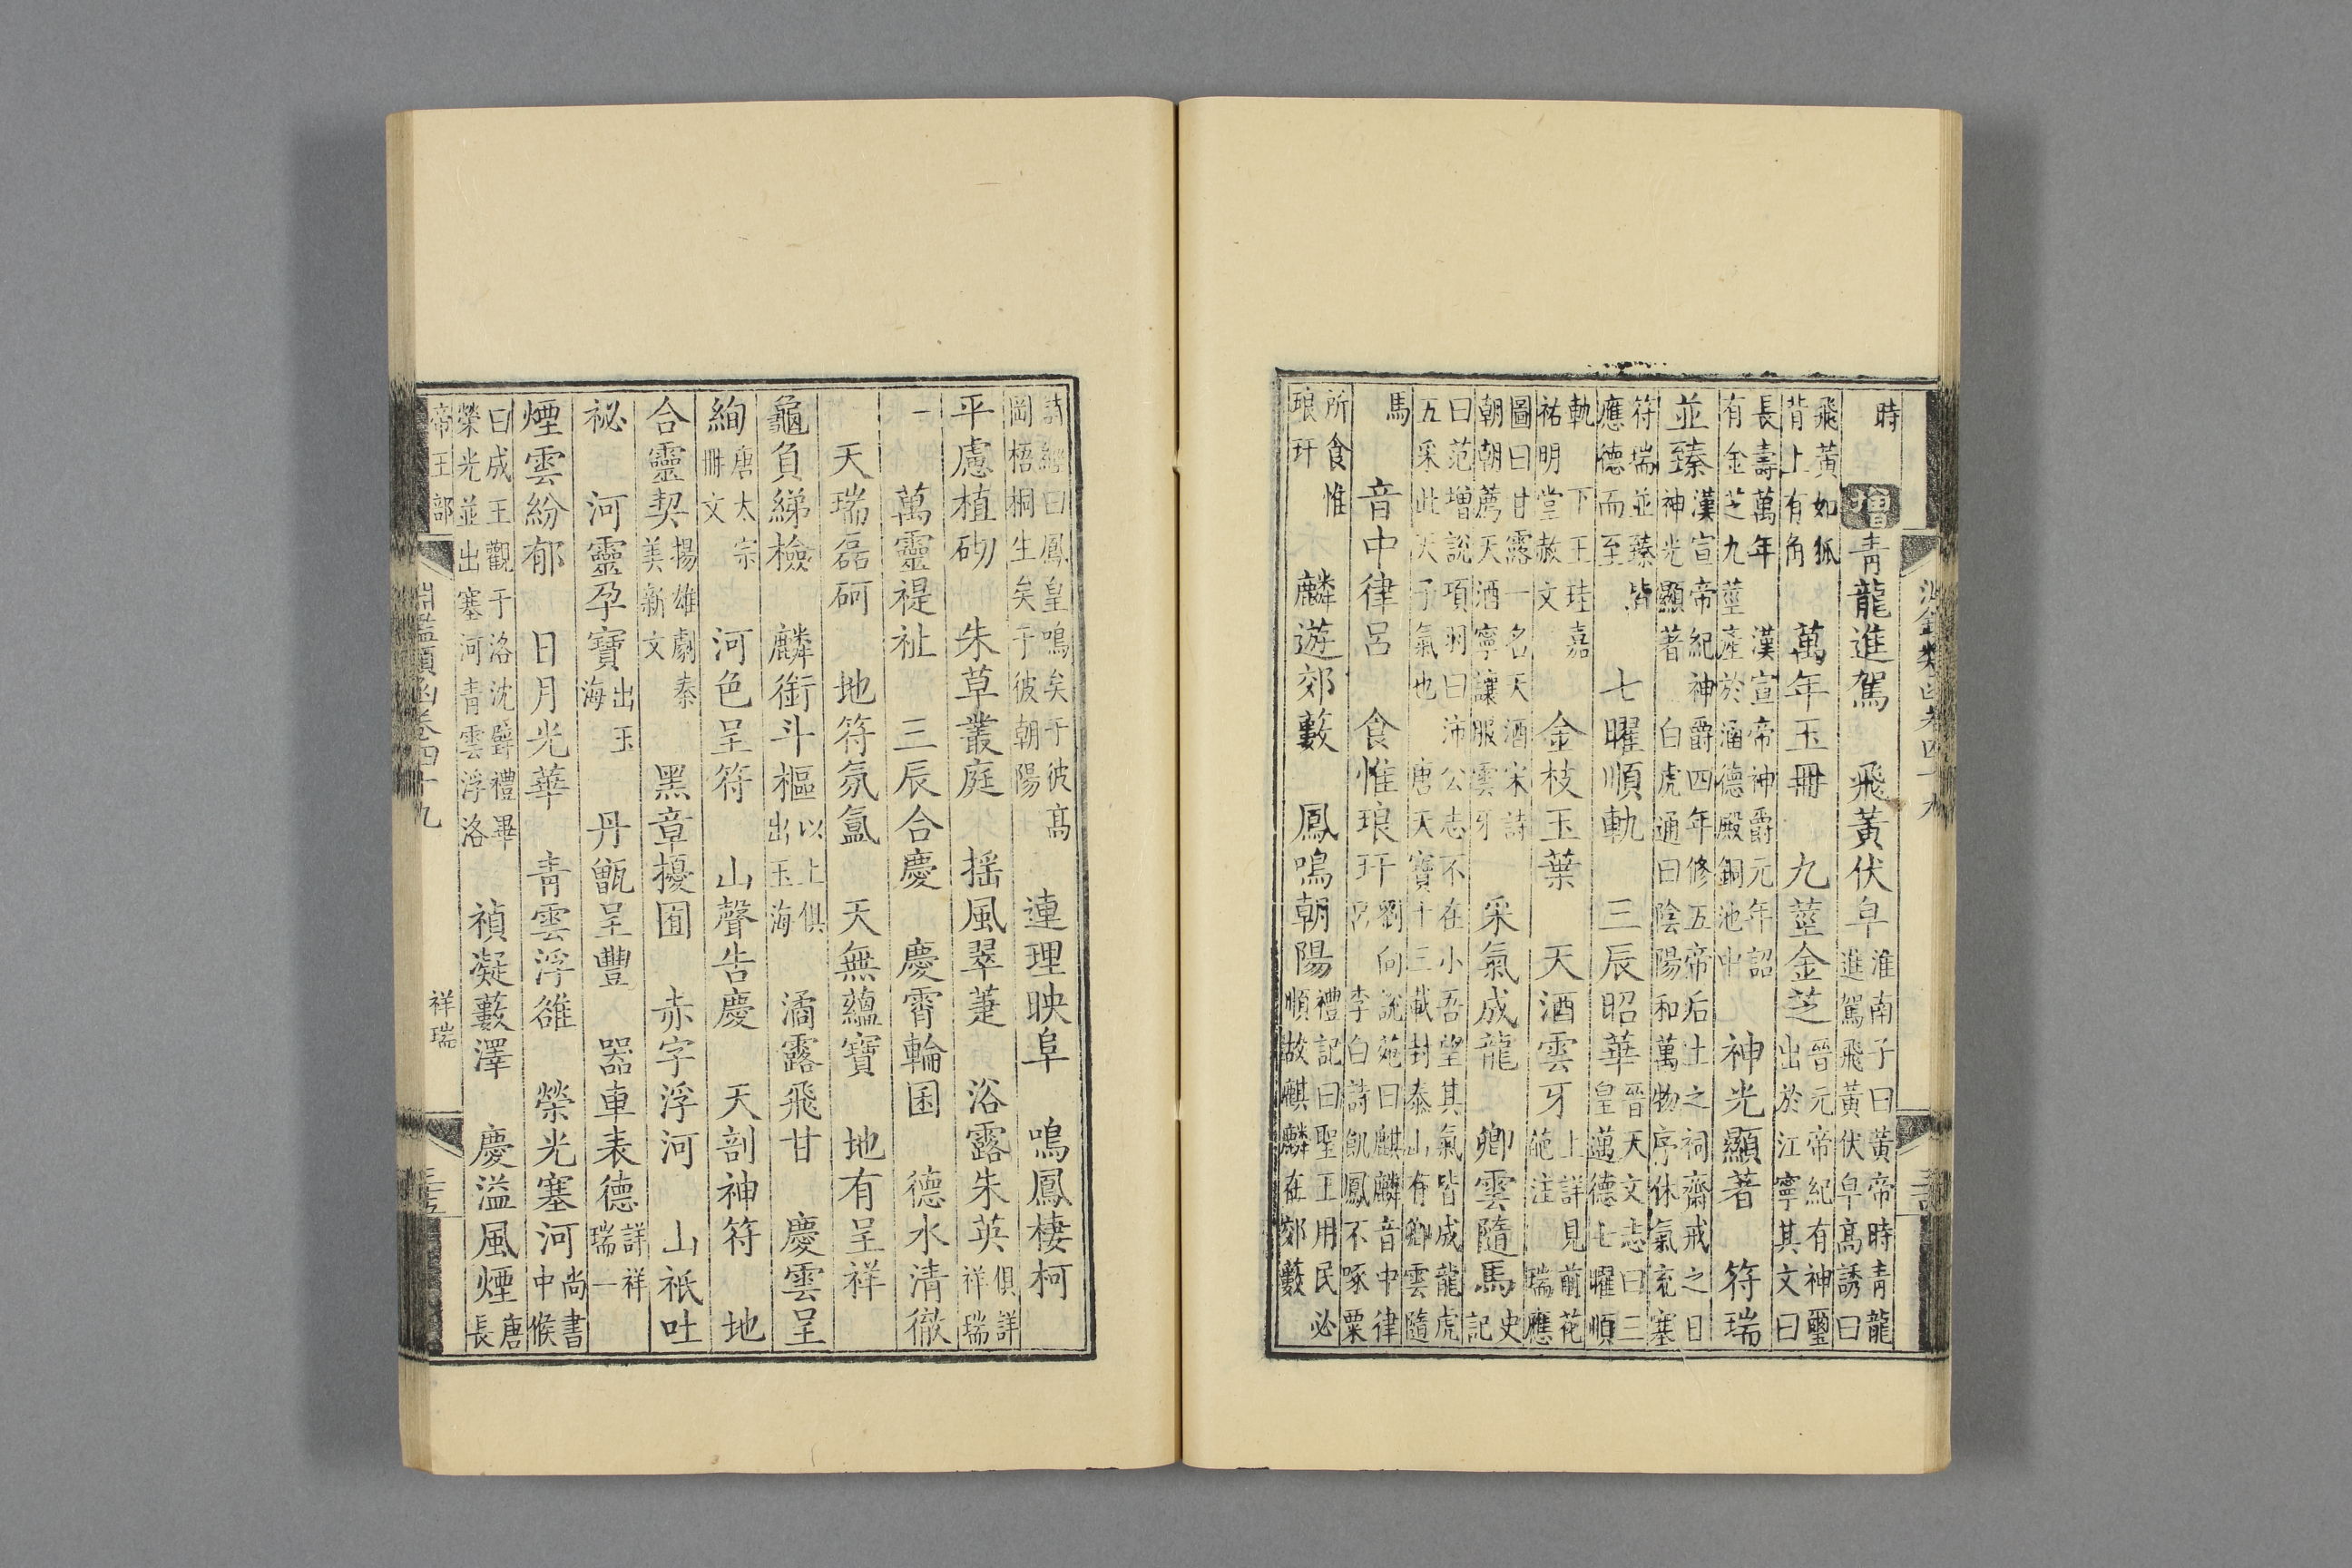 時　增青龍進駕　飛黃伏皁淮南子曰黃帝時青龍進駕飛黃伏皁高誘曰
飛黃如狐背上有角　萬年玉冊　九莖金芝晉元帝紀有神璽出於江寧其文曰
長壽萬年漢宣帝神爵元年詔有金芝九莖產於涵德殿銅池中　神光顯著　符瑞
並臻漢宣帝紀神爵四年修五帝后土之祠齋戒之日神光顯著　白虎通曰陰陽和萬物序休氣充塞
符瑞並臻皆應德而至　七曜順軌　三辰昭華晉天文志曰三皇邁德七曜順
軌下王珪嘉祐明堂赦文　金枝玉葉　天酒雲牙上詳見前花葩注瑞應
圖曰甘露一名天酒宋詩朝朝薦天酒寧讓服雲牙　采氣成龍　卿雲隨馬史記
曰范增說項羽曰沛公志不在小吾望其氣皆成龍虎五采此天子氣也　唐天寶十三載封泰山有卿雲隨
馬　音中律呂　食惟琅玕劉向說苑曰麒麟音中律呂　李白詩飢鳳不啄粟
所食惟琅玕　麟遊郊藪　鳳鳴朝陽禮記曰聖王用民必順故麒麟在郊藪
詩經曰鳳皇鳴矣于彼高岡梧桐生矣于彼朝陽　連理映阜　鳴鳳棲柯
平慮植砌　朱草叢庭　搖風翠萐　浴露朱英俱詳祥瑞
一　萬靈禔祉　三辰合慶　慶霄輪囷　德水清徹
天瑞磊砢　地符氛氳　天無蘊寶　地有呈祥
龜負綈檢　麟銜斗樞以上俱出玉海　潏露飛甘　慶雲呈
絢唐太宗冊文　河色呈符　山聲告慶　天剖神符　地
合靈契揚雄劇秦美新文　黑章擾囿　赤字浮河　山祇吐
祕　河靈孕寶出玉海　丹甑呈豐　器車表德詳祥瑞一
煙雲紛郁　日月光華　青雲浮雒　榮光塞河尚書中候
曰成王觀于洛沈璧禮畢榮光並出塞河青雲浮洛　禎凝藪澤　慶溢風煙唐長
帝王部　淵鑑類函卷四十九　祥瑞